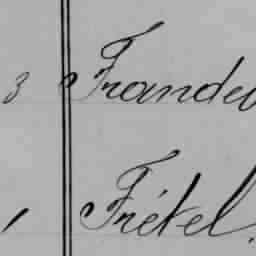 3 Frandeo
Frétel.